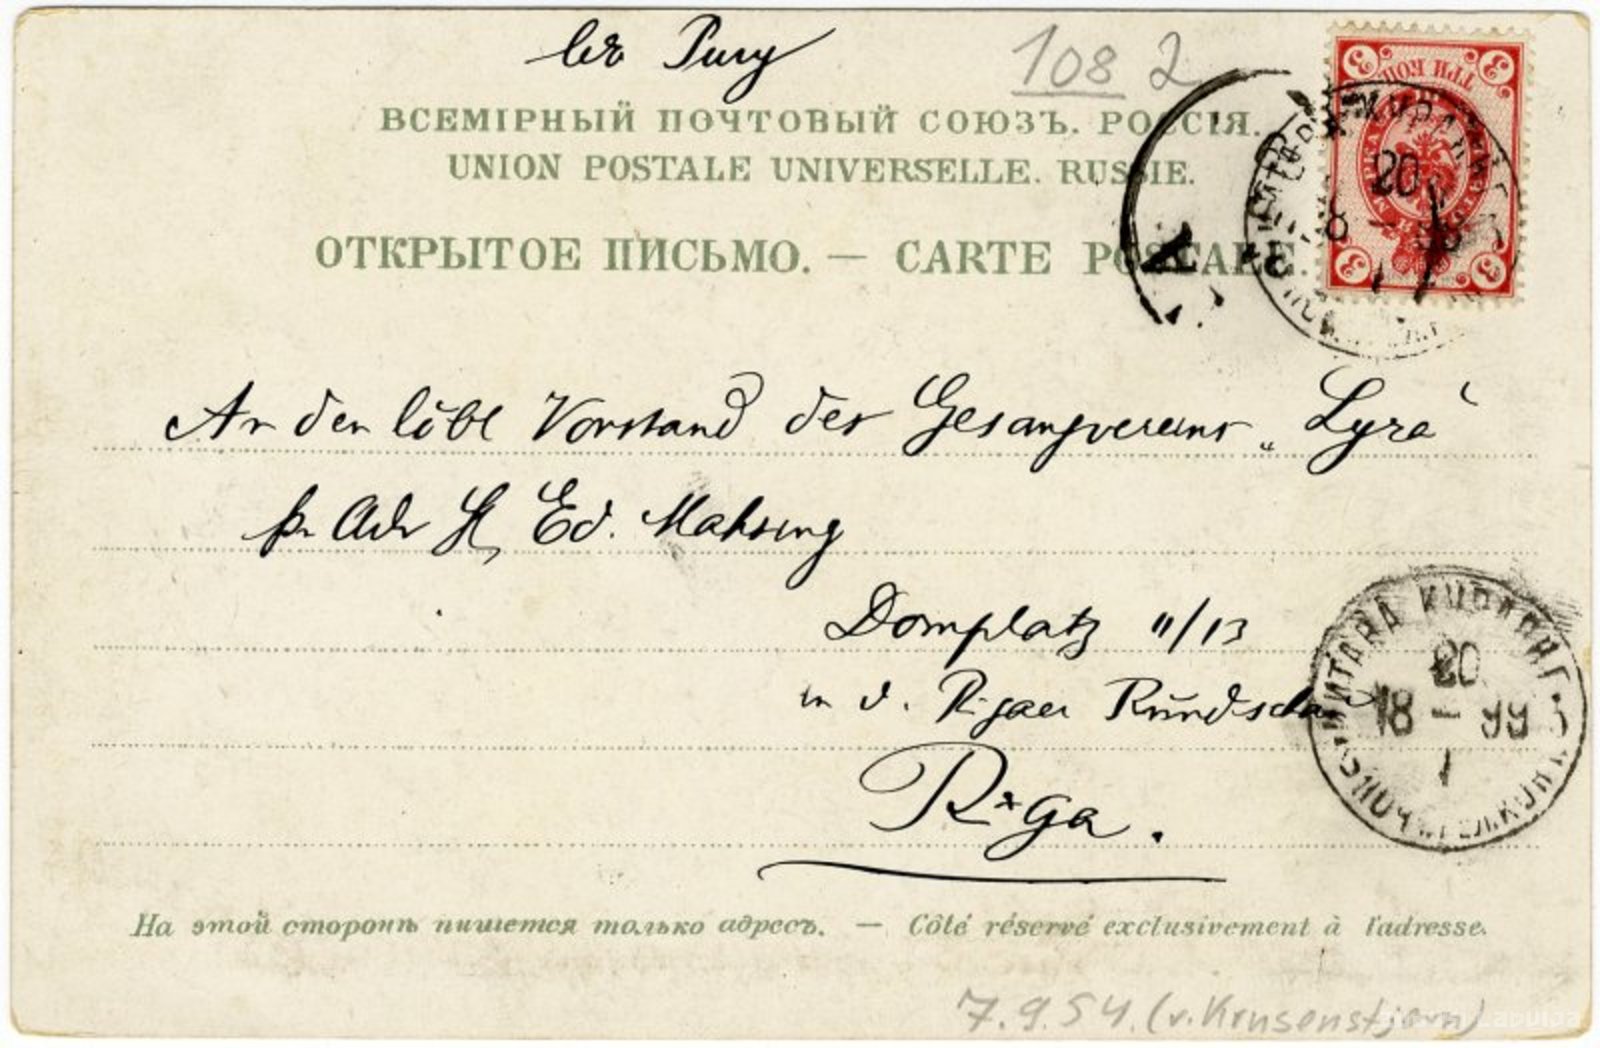 въ Ригу
108 2
ВСЕМІРНЫЙ ПОЧТОВЫЙ СОЮЗЪ. РОССІЯ.
UNION POSTALE UNIVERSELLE. RUSSIE.
ОТКРЫТОЕ ПИСЬМО. — CARTE POSTALE.
3 ТРИ КОП. 3
3 3
20
18 —
1
An den löbl Vorstand des Gesangvereins „Lyra“
pr Adr H, Ed. Mahsing
Domplatz 11/13
in d. Rigaer Rundschau
Riga.
МИТАВА КУРЛЯНД.
20
18 — 99
1
На этой сторонѣ пишется только адресъ. — Côté réservé exclusivement à l'adresse.
7.9.54. (v. Krusenstjern)